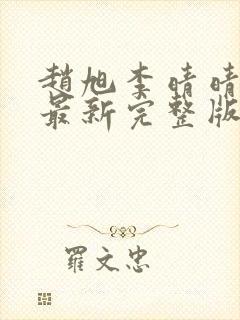 趙旭李晴晴
最新完整版
羅文忠